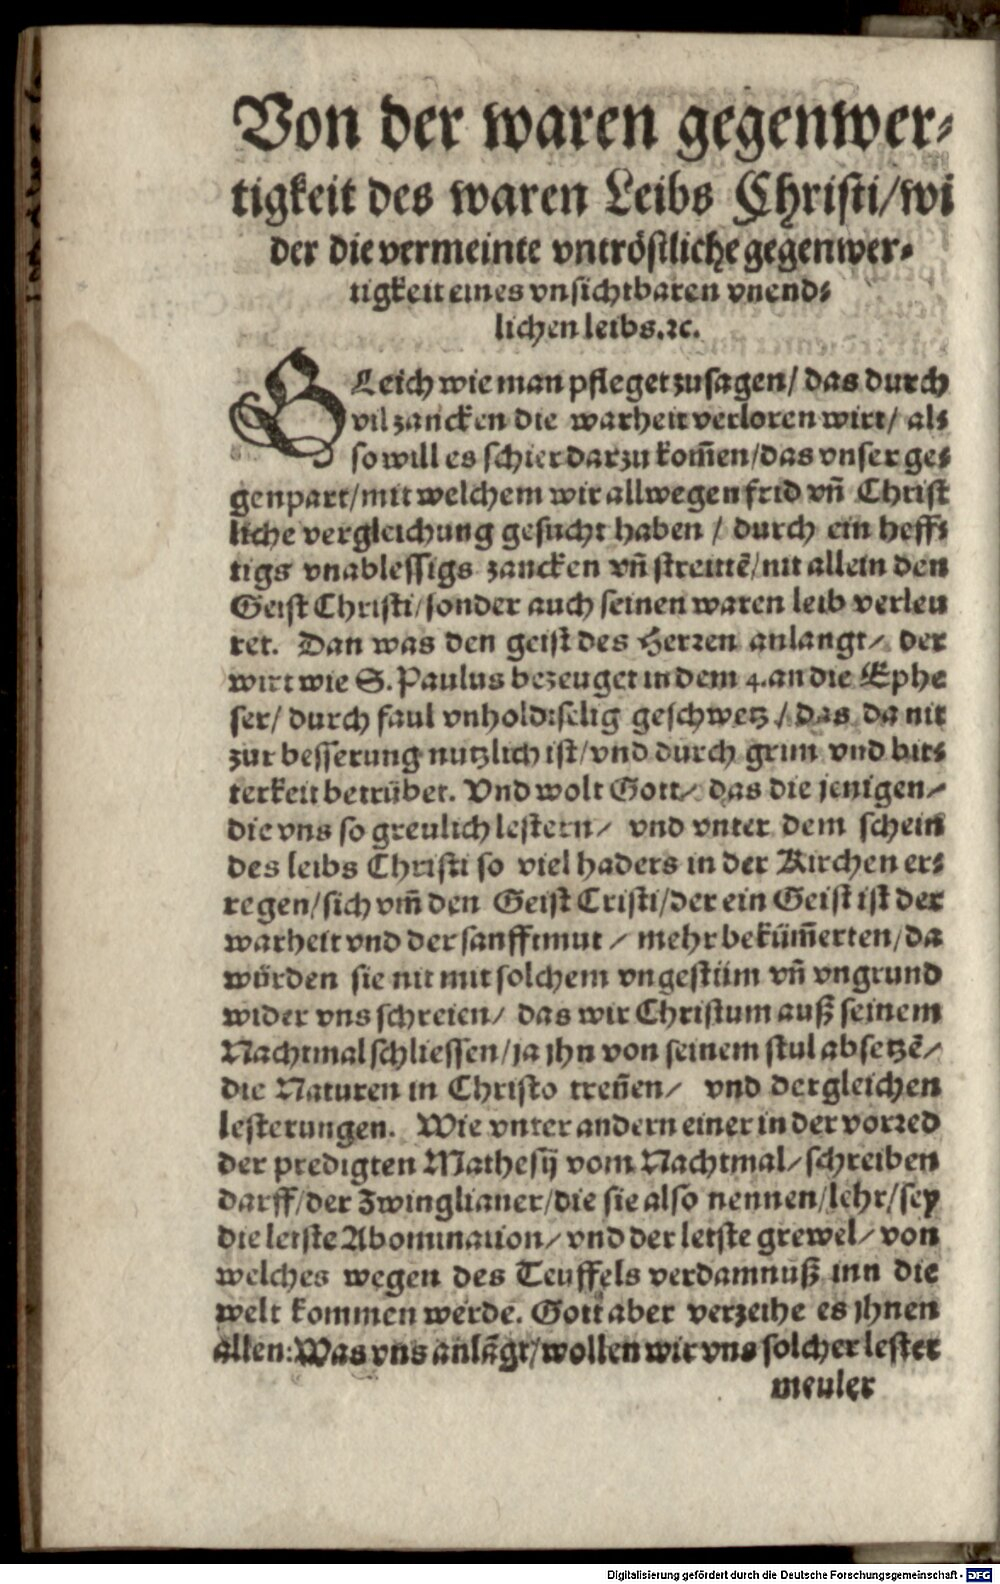 Von der waren gegenwer⸗
tigkeit des waren Leibs Christi/wi
der die vermeinte vntröstliche gegenwer⸗
tigkeit eines vnsichtbaren vnend⸗
lichen leibs.ꝛc.
GLeich wie man pfleget zusagen/ das durch
vil zancken die warheit verloren wirt/ al⸗
so will es schier darzu kom̄en/das vnser ge⸗
genpart/mit welchem wir allwegen frid vn̄ Christ
liche vergleichung gesucht haben / durch ein heff⸗
tigs vnablessigs zancken vn̄ streittē/nit allein den
Geist Christi/sonder auch seinen waren leib verleu
ret. Dan was den geist des Herꝛen anlangt/ der
wirt wie S. Paulus bezeuget in dem 4. an die Ephe
ser/ durch faul vnholdselig geschwetz / das da nit
zur besserung nutzlich ist/vnd durch grim vnd bit⸗
terkeit betrübet. Vnd wolt Gott/ das die jenigen/
die vns so greulich lestern/ vnd vnter dem schein
des leibs Christi so viel haders in der Kirchen er⸗
regen/sich vm̄ den Geist Cristi/der ein Geist ist der
warheit vnd der sanfftmut / mehr beküm̄erten/da
würden sie nit mit solchem vngestüm vn̄ vngrund
wider vns schreien/ das wir Christum auß seinem
Nachtmal schliessen/ja jhn von seinem stul absetzē/
die Naturen in Christo tren̄en/ vnd dergleichen
lesterungen. Wie vnter andern einer in der vorꝛed
der predigten Mathesij vom Nachtmal/schreiben
darff/der Zwinglianer/die sie also nennen/lehr/sey
die letste Abomination/vnd der letste grewel/von
welches wegen des Teuffels verdamnuß inn die
welt kommen werde. Gott aber verzeihe es jhnen
allen: Was vns anlāgt/wollen wir vns solcher lester
meuler
Digitalisierung gefördert durch die Deutsche Forschungsgemeinschaft - DFG